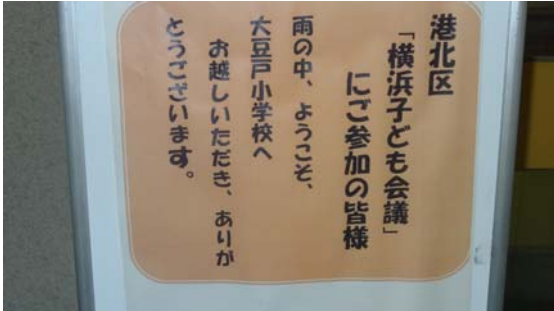 港北区
「横浜子ども会議」
にご参加の皆様
雨の中、ようこそ、
大豆戸小学校へ
お越しいただき、ありが
とうございます。